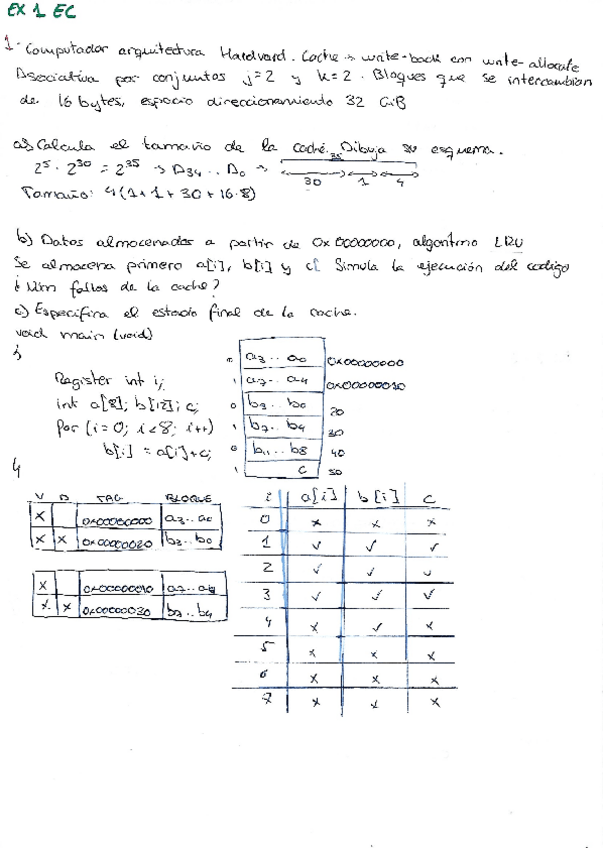 EX 1 EC
1- Computador arquitectura Hardvard. Cache → write-back con write-allocate
Asociativa por conjuntos j=2 y k=2. Bloques que se intercambian
de 16 bytes, espacio direccionamiento 32 GiB
a) Calcula el tamaño de la caché. Dibuja su esquema.
35
2^5 · 2^30 = 2^35 → A34 .. A0 →
30 1 4
Tamaño: 4(1+1+30+16·8)
b) Datos almacenados a partir de 0x00000000, algoritmo LRU
Se almacena primero a[i], b[i] y c[ Simula la ejecución del codigo
¿ Num fallos de la cache?
c) Especifica el estado final de la cache.
void main (void)
{
Register int i;
int a[8]; b[12]; c;
for (i=0; i<8; i++)
b[i] = a[i]+c;
}
0 a3 .. a0 0x00000000
1 a7 .. a4 0x00000010
0 b3 .. b0 20
1 b7 .. b4 30
0 b11 .. b8 40
1 c 50
V D TAG BLOQUE
X 0x00000000 a3 .. a0
X X 0x00000020 b3 .. b0
X 0x00000010 a7 .. a4
X X 0x00000030 b7 .. b4
i a[i] b[i] c
0 x x x
1 ✓ ✓ ✓
2 ✓ ✓ ✓
3 ✓ ✓ ✓
4 x ✓ x
5 x x x
6 x x x
7 x x x